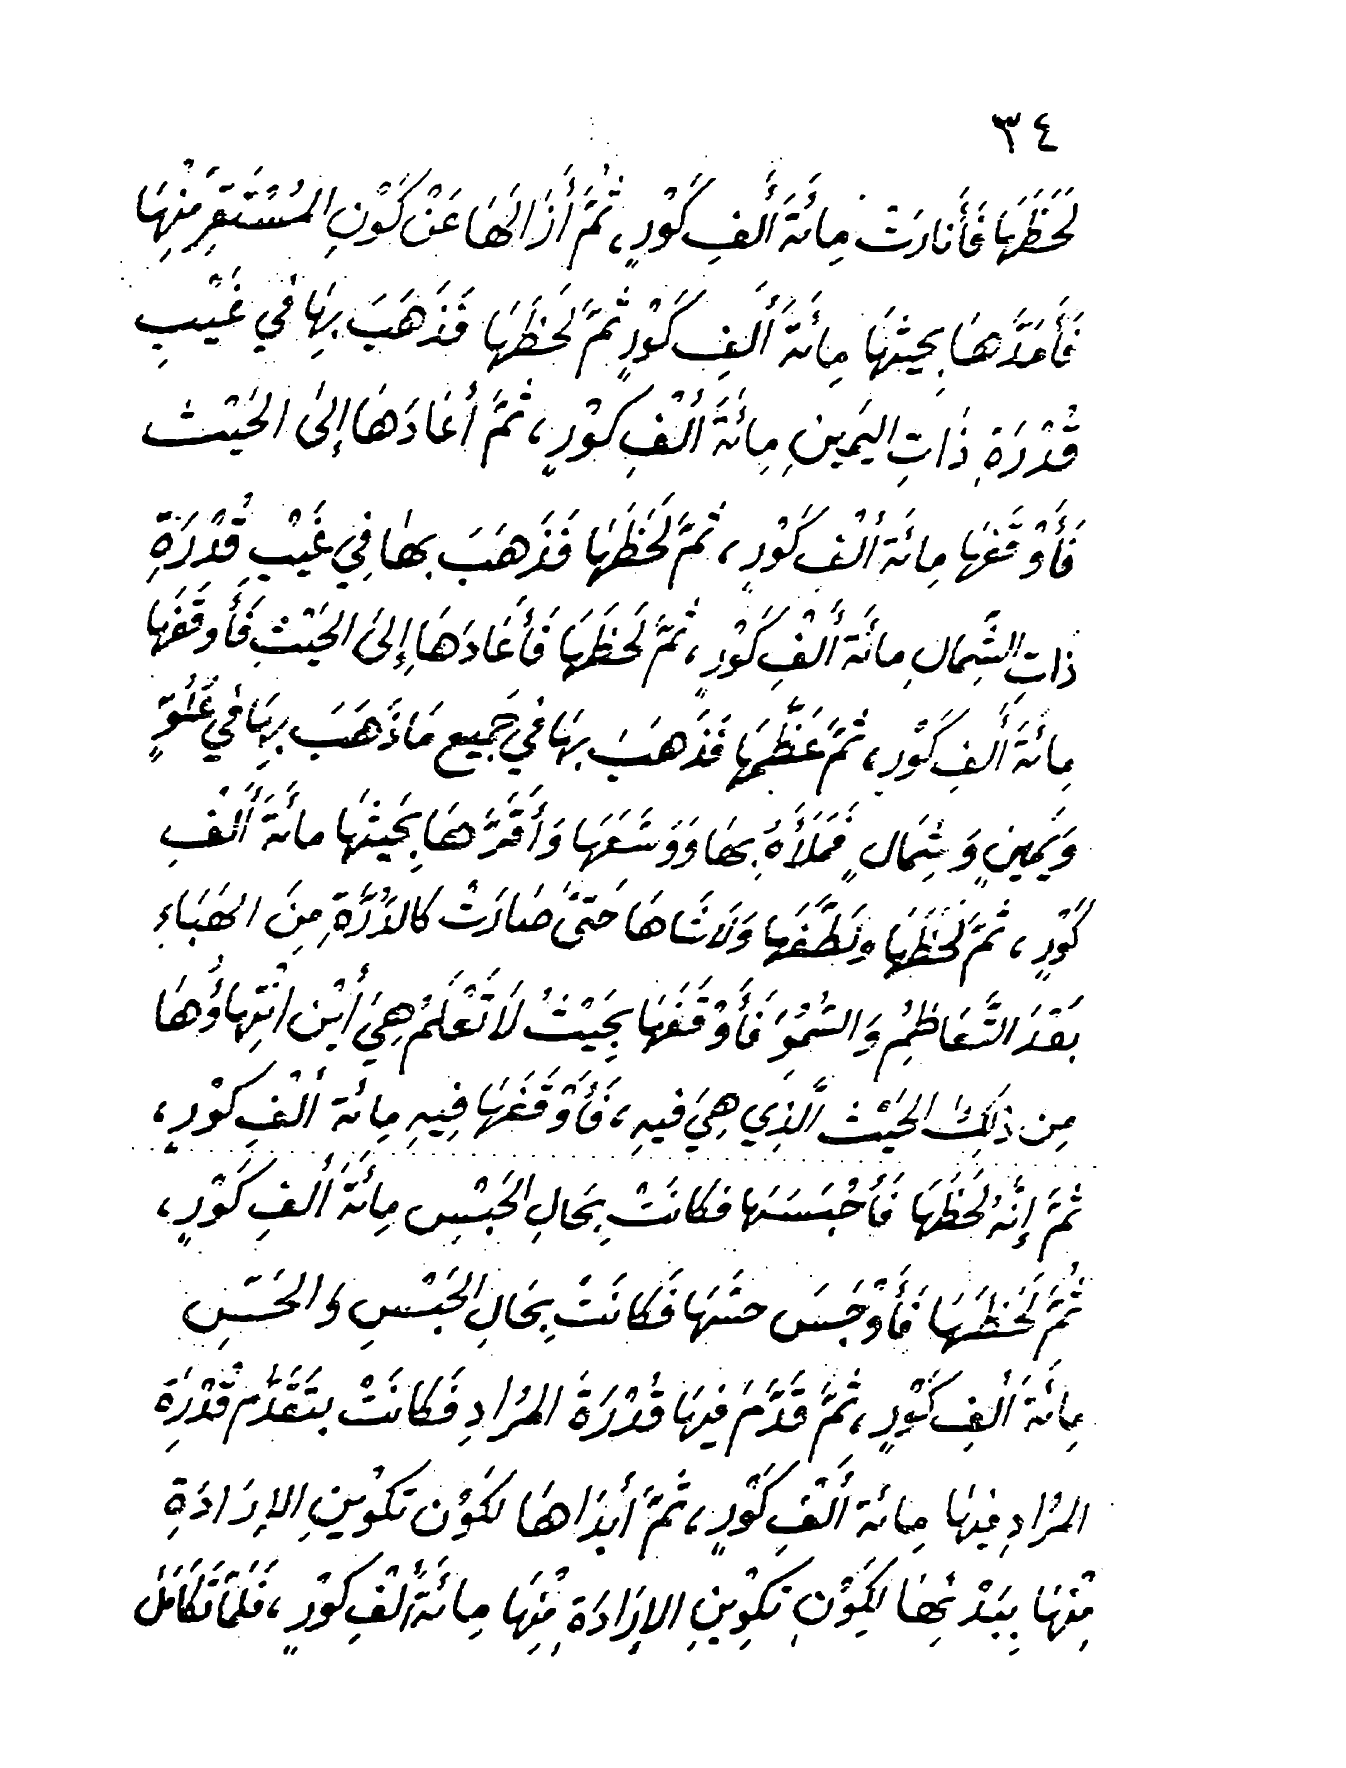 ٣٤
لَحَظَهَا فَأَنَارَتْ مِائَةَ أَلْفِ كَوْرٍ، ثُمَّ أَزَالَهَا عَنْ كَوْنِ المُسْتَقِرِّ مِنْهَا
فَأَمَدَّهَا بِحَيْثِهَا مِائَةَ أَلْفِ كَوْرٍ ثُمَّ لَحَظَهَا فَذَهَبَ بِهَا فِي غَيْبِ
قُدْرَةِ ذَاتِ اليَمِينِ مِائَةَ أَلْفِ كَوْرٍ، ثُمَّ أَعَادَهَا إِلَى الحَيْثِ
فَأَوْقَفَهَا مِائَةَ أَلْفِ كَوْرٍ، ثُمَّ لَحَظَهَا فَذَهَبَ بِهَا فِي غَيْبِ قُدْرَةِ
ذَاتِ الشِّمَالِ مِائَةَ أَلْفِ كَوْرٍ، ثُمَّ لَحَظَهَا فَأَعَادَهَا إِلَى الحَيْثِ فَأَوقَفَهَا
مِائَةَ أَلْفِ كَوْرٍ، ثُمَّ عَظَّمَهَا فَذَهَبَ بِهَا فِي جَمِيعِ مَا ذَهَبَ بِهَا فِي عُلُوٍّ
وَيَمِينٍ وَشِمَالٍ فَمَلَأَهُ بِهَا وَوَسَّعَهَا وَأَقَرَّهَا بِحَيْثِهَا مِائَةَ أَلْفِ
كَوْرٍ، ثُمَّ لَحَظَهَا وَلَطَّفَهَا وَلَاشَاهَا حَتَّى صَارَتْ كَالذَّرَّةِ مِنَ الهَبَاءِ
بَعْدَ التَّعَاظُمِ وَالسُّمُوِّ فَأَوْقَفَهَا بِحَيْثُ لَا تَعْلَمُ هِيَ أَيْنَ انْتِهَاؤُهَا
مِن ذَلِكَ الحَيْثِ الَّذِي هِيَ فِيهِ، فَأَوْقَفَهَا فِيهِ مِائَةَ أَلْفِ كَوْرٍ،
ثُمَّ إِنَّهُ لَحَظَهَا فَأَحْبَسَهَا فَكَانَتْ بِحَالِ الحَبْسِ مِائَةَ أَلْفِ كَوْرٍ،
ثُمَّ لَحَظَهَا فَأَوْجَسَ حسَّهَا فَكَانَتْ بِحَالِ الحَبْسِ وَالحَسِّ
مِائَةَ أَلْفِ كَوْرٍ، ثُمَّ قَدَّمَ فِيهَا قُدْرَةَ المُرَادِ فَكَانَتْ بِتَقَدُّمِ قُدْرَةِ
المُرَادِ فِيهَا مِائَةَ أَلْفِ كَوْرٍ، ثُمَّ أَبْدَاهَا لِكَوْنِ تَكوْينِ الإِرَادَةِ
مِنْهَا بِبَدْئِهَا لِكَوْنِ تَكوِينِ الإِرَادَةِ مِنْهَا مِائَةَ أَلْفِ كَوْرٍ، فَلَمَّا تَكَامَلَ